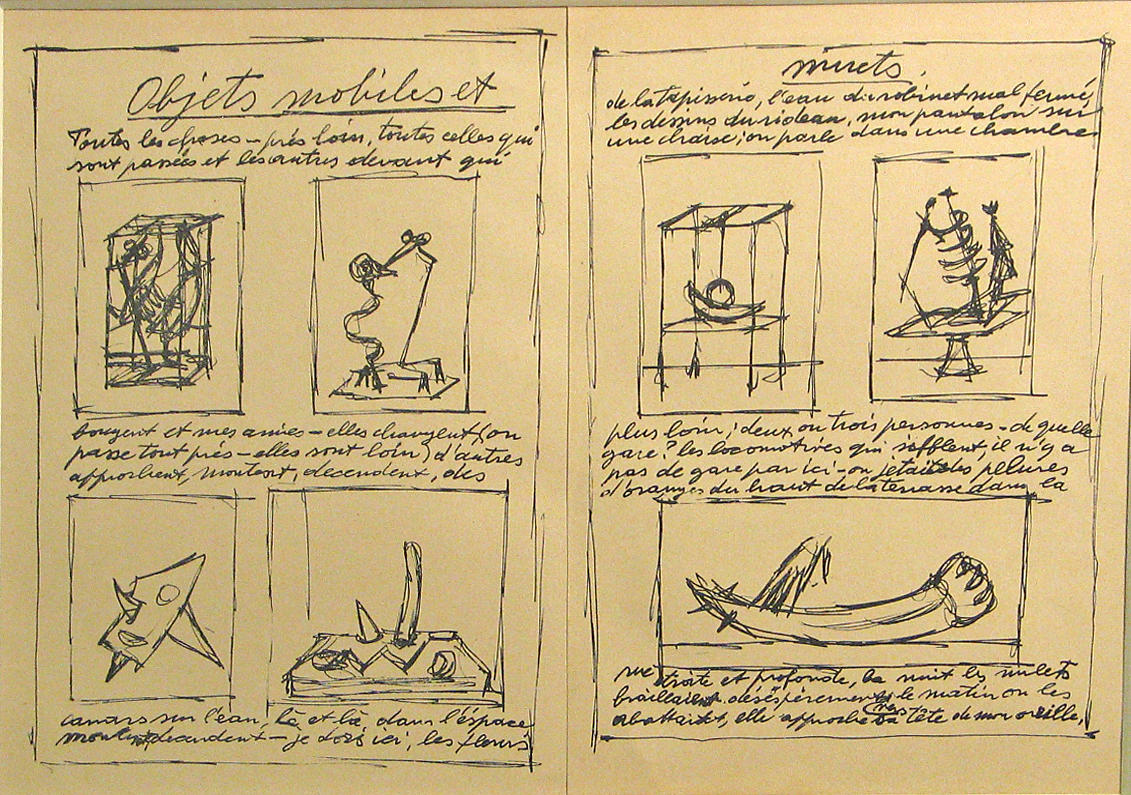 Objets mobiles et
Toutes les choses – près loin, toutes celles qui
sont passées et les autres devant qui
bougent et mes amies – elles changent (on
passe tout près – elles sont loin) d'autres
approchent, montent, decendent, des
canars sur l'eau, là et là dans l'éspace
montent decendent – je dors ici, les fleurs
muets.
de la tapisserie, l'eau du robinet mal fermé,
les dessins du rideau, mon pantalon sur
une chaise; on parle dans une chambre
plus loin; deux ou trois personnes – de quelle
gare? les locomotives qui sifflent, il n'y a
pas de gare par ici – on jetait des pelures
d'oranges du haut de la terrasse dans la
rue étroite et profonde, la nuit les mulets
braillaient désespérement, le matin on les
abattait, elle approche sa tête de mon oreille,